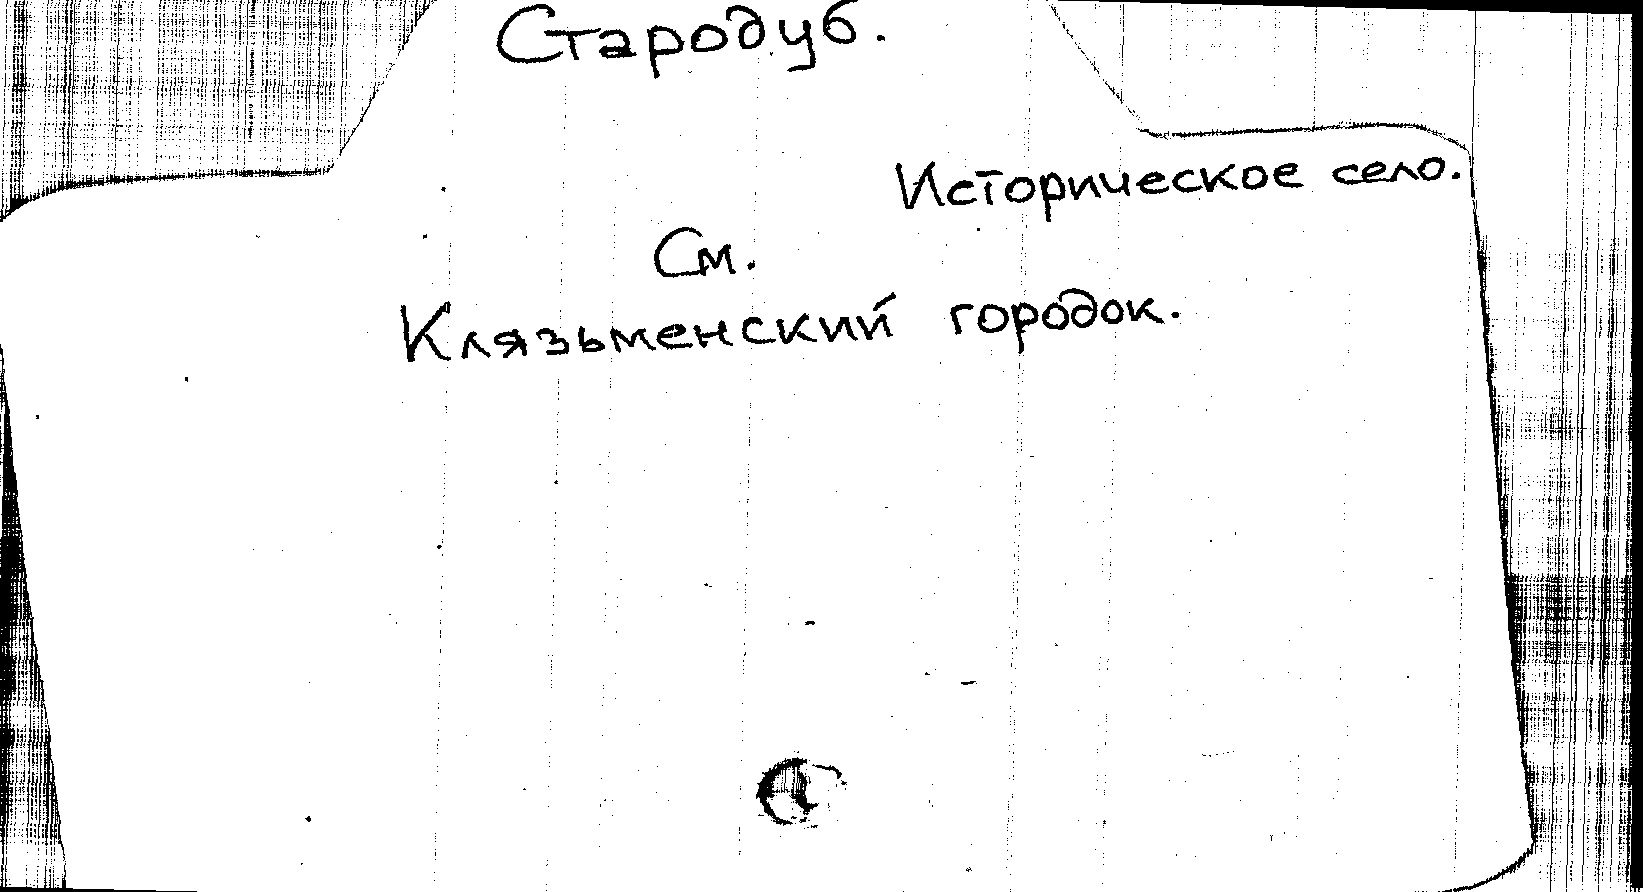 Стародуб.
Историческое село.
См.
Клязьменский городок.